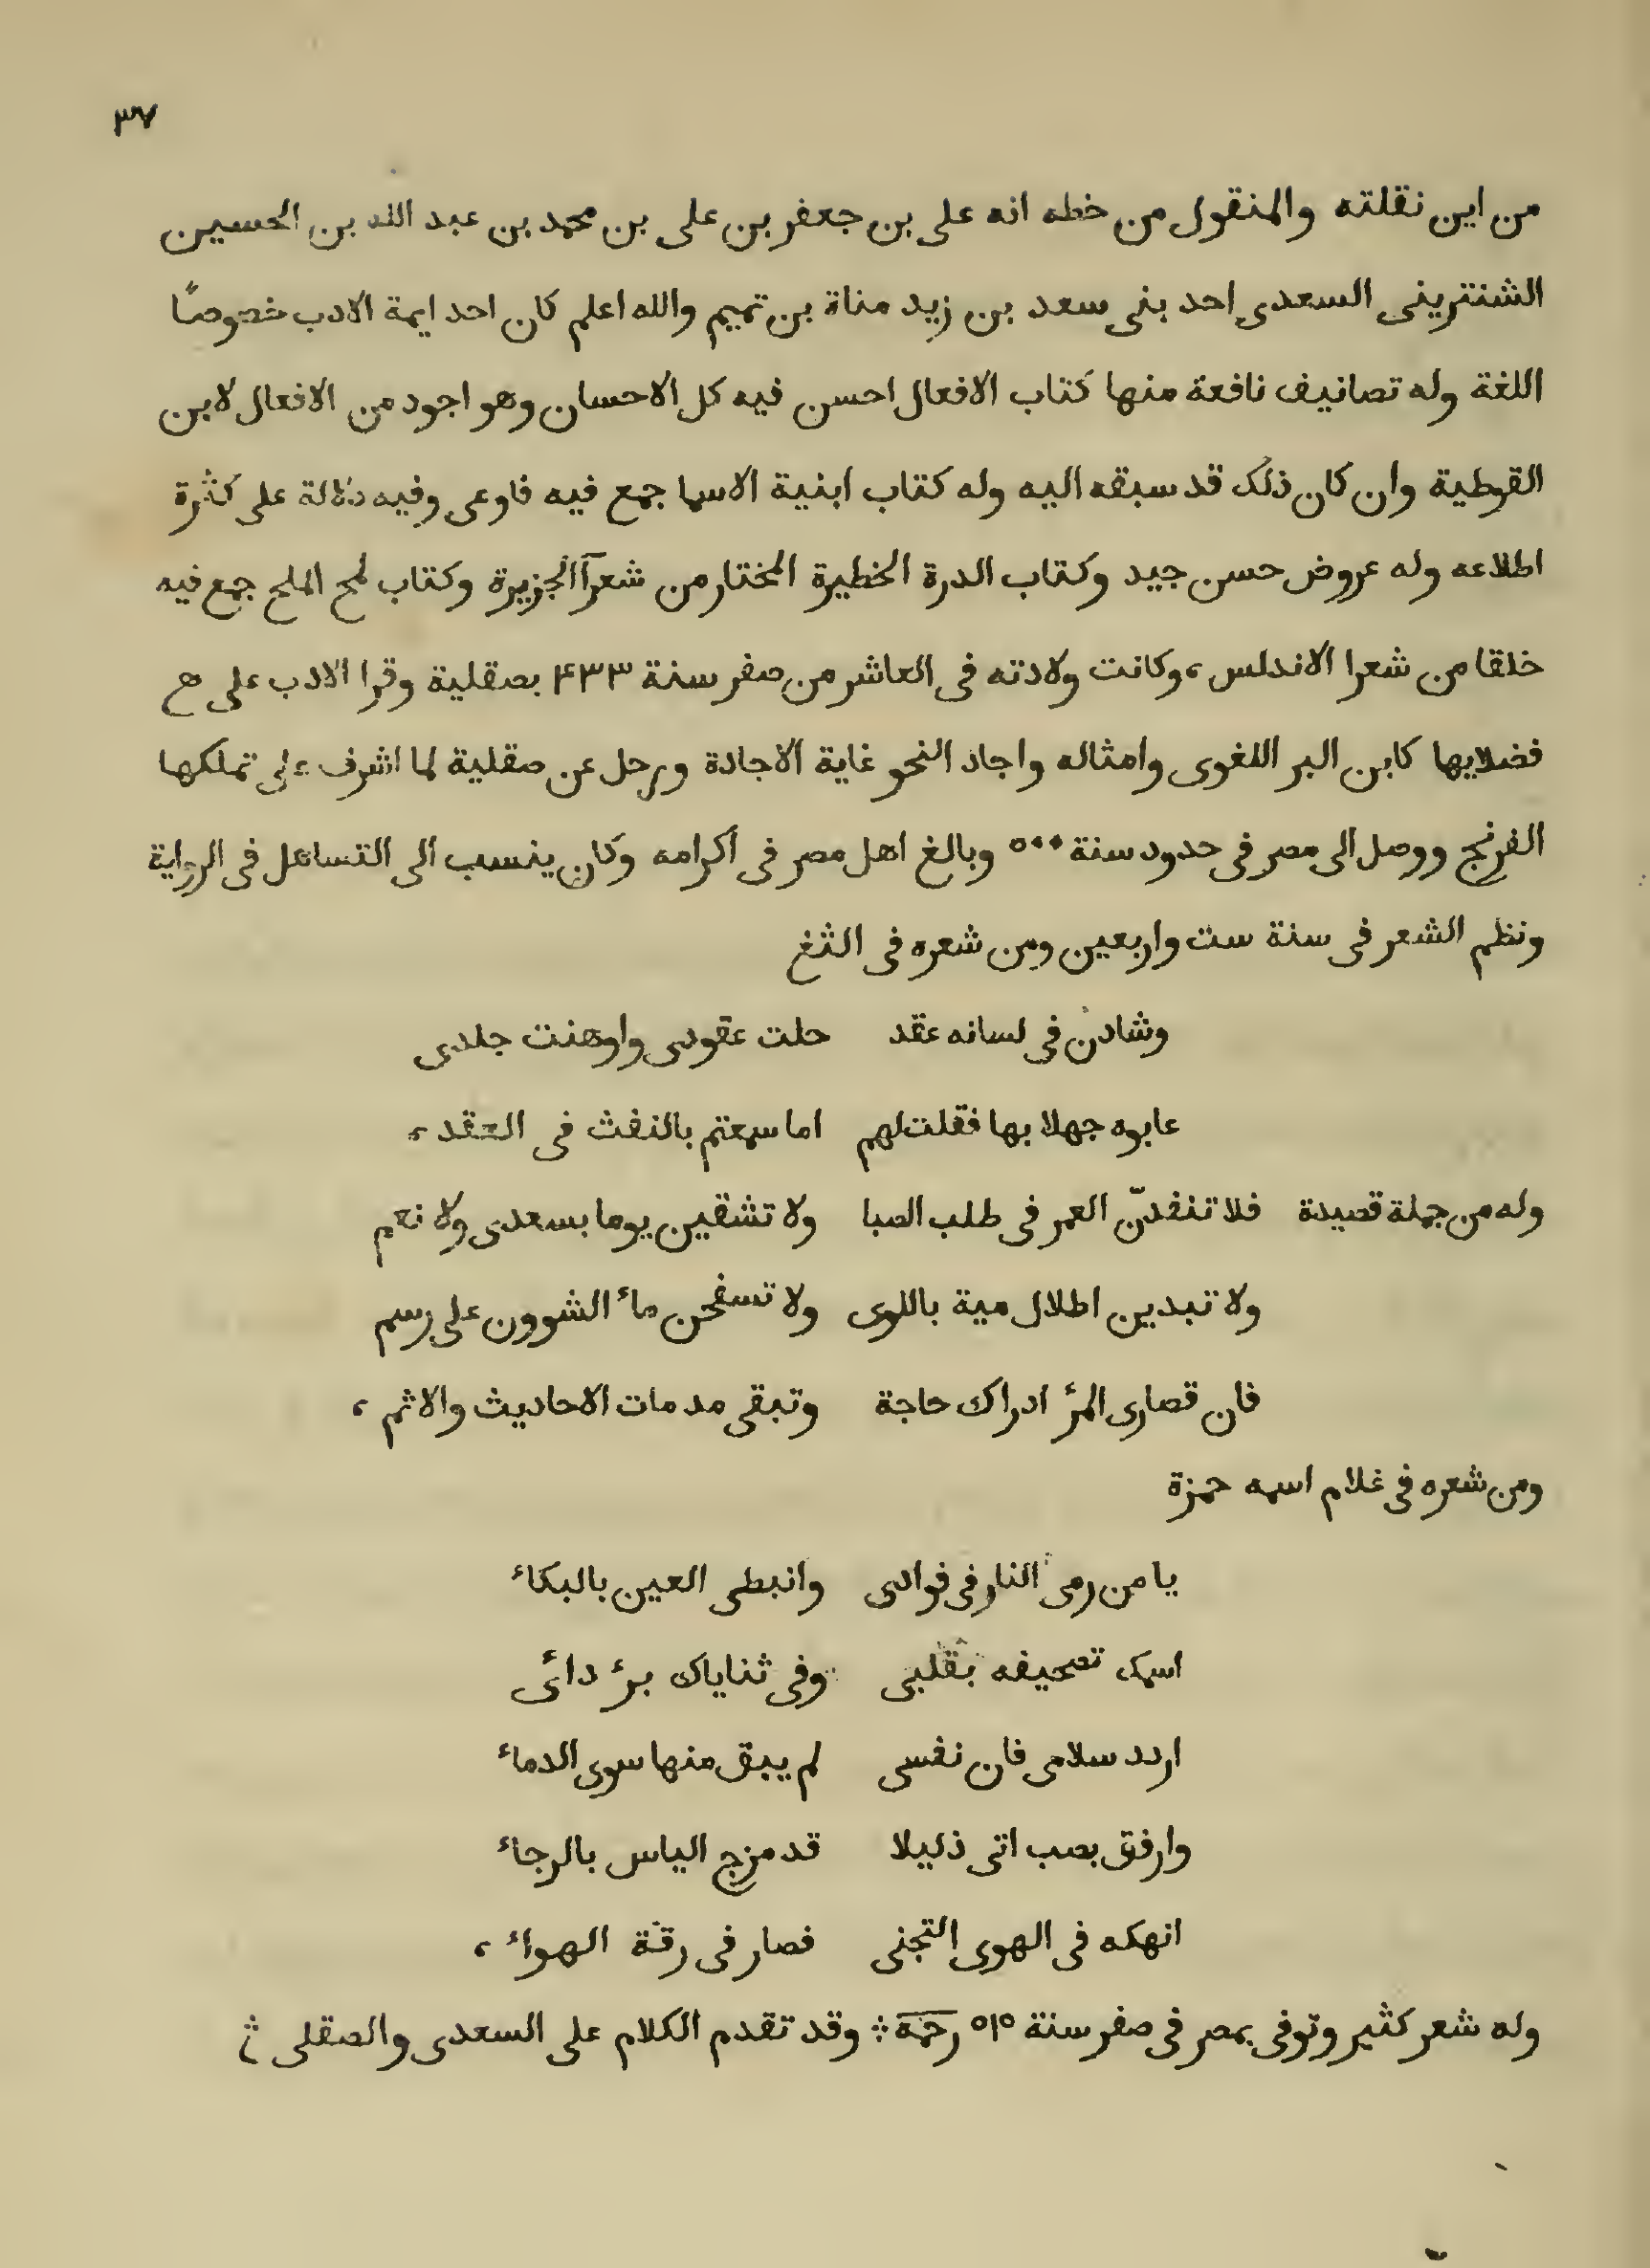 ٣٧
من اين نقلته والمنقول من خطه انه على بن جعفر بن على بن محمد بن عبد الله بن الحسين
الشنترينى السعدى احد بنى سعد بن زيد مناة بن تميم والله اعلم كان احد ايمة الادب خصوصًا
اللغة وله تصانيف نافعة منها كتاب الافعال احسن فيه كل الاحسان وهو اجود من الافعال لابن
القوطية وان كان ذلك قد سبقه اليه وله كتاب ابنية الاسما جمع فيه فاوعى وفيه دلالة على كثرة
اطلاعه وله عروض حسن جيد وكتاب الدرة الخطيرة المختار من شعرآ الجزيرة وكتاب لمح الملح جمع فيه
خلقا من شعرا الاندلس، وكانت ولادته فى العاشر من صفر سنة ۴۳۳ بصقلية وقرا الادب على
فضلايها كابن البر اللغوى وامثاله واجاد النحو غاية الاجادة ورحل عن صقلية لما اشرف على تملكها
الفرنج ووصل الى مصر فى حدود سنة ٥٠٠ وبالغ اهل مصر فى اكرامه وكان ينسب الى التساهل فى الرواية
ونظم الشعر فى سنة ست واربعين ومن شعره فى الثغ
وشادن فى لسانه عقد حلت عقودى واوهنت جلدى
عابوه جهلا بها فقلت لهم اما سمعتم بالنفث فى العقد،
وله من جملة قصيدة فلا تنفدنّ العمر فى طلب الصبا ولا تشقين يوما بسعدى ولا نعم
ولا تبدين اطلال مية باللوى ولا تسفحن ماء الشوون على رسم
فان قصارى المرء ادراك حاجة وتبقى مدمات الاحاديث والاثم،
ومن شعره فى غلام اسمه حمزة
يا من رمى النار فى فوادى وانبطى العين بالبكاء
اسمك تصحيفه بقلبى وفى ثناياك برء دائى
اردد سلامى فان نفسى لم يبق منها سوى الدماء
وارفق بصب اتى ذليلا قد مزج الياس بالرجاء
انهكه فى الهوى التجنى فصار فى رقة الهواء،
وله شعر كثير وتوفى بمصر فى صفر سنة ٥١٥ رحمة وقد تقدم الكلام على السعدى والصقلى